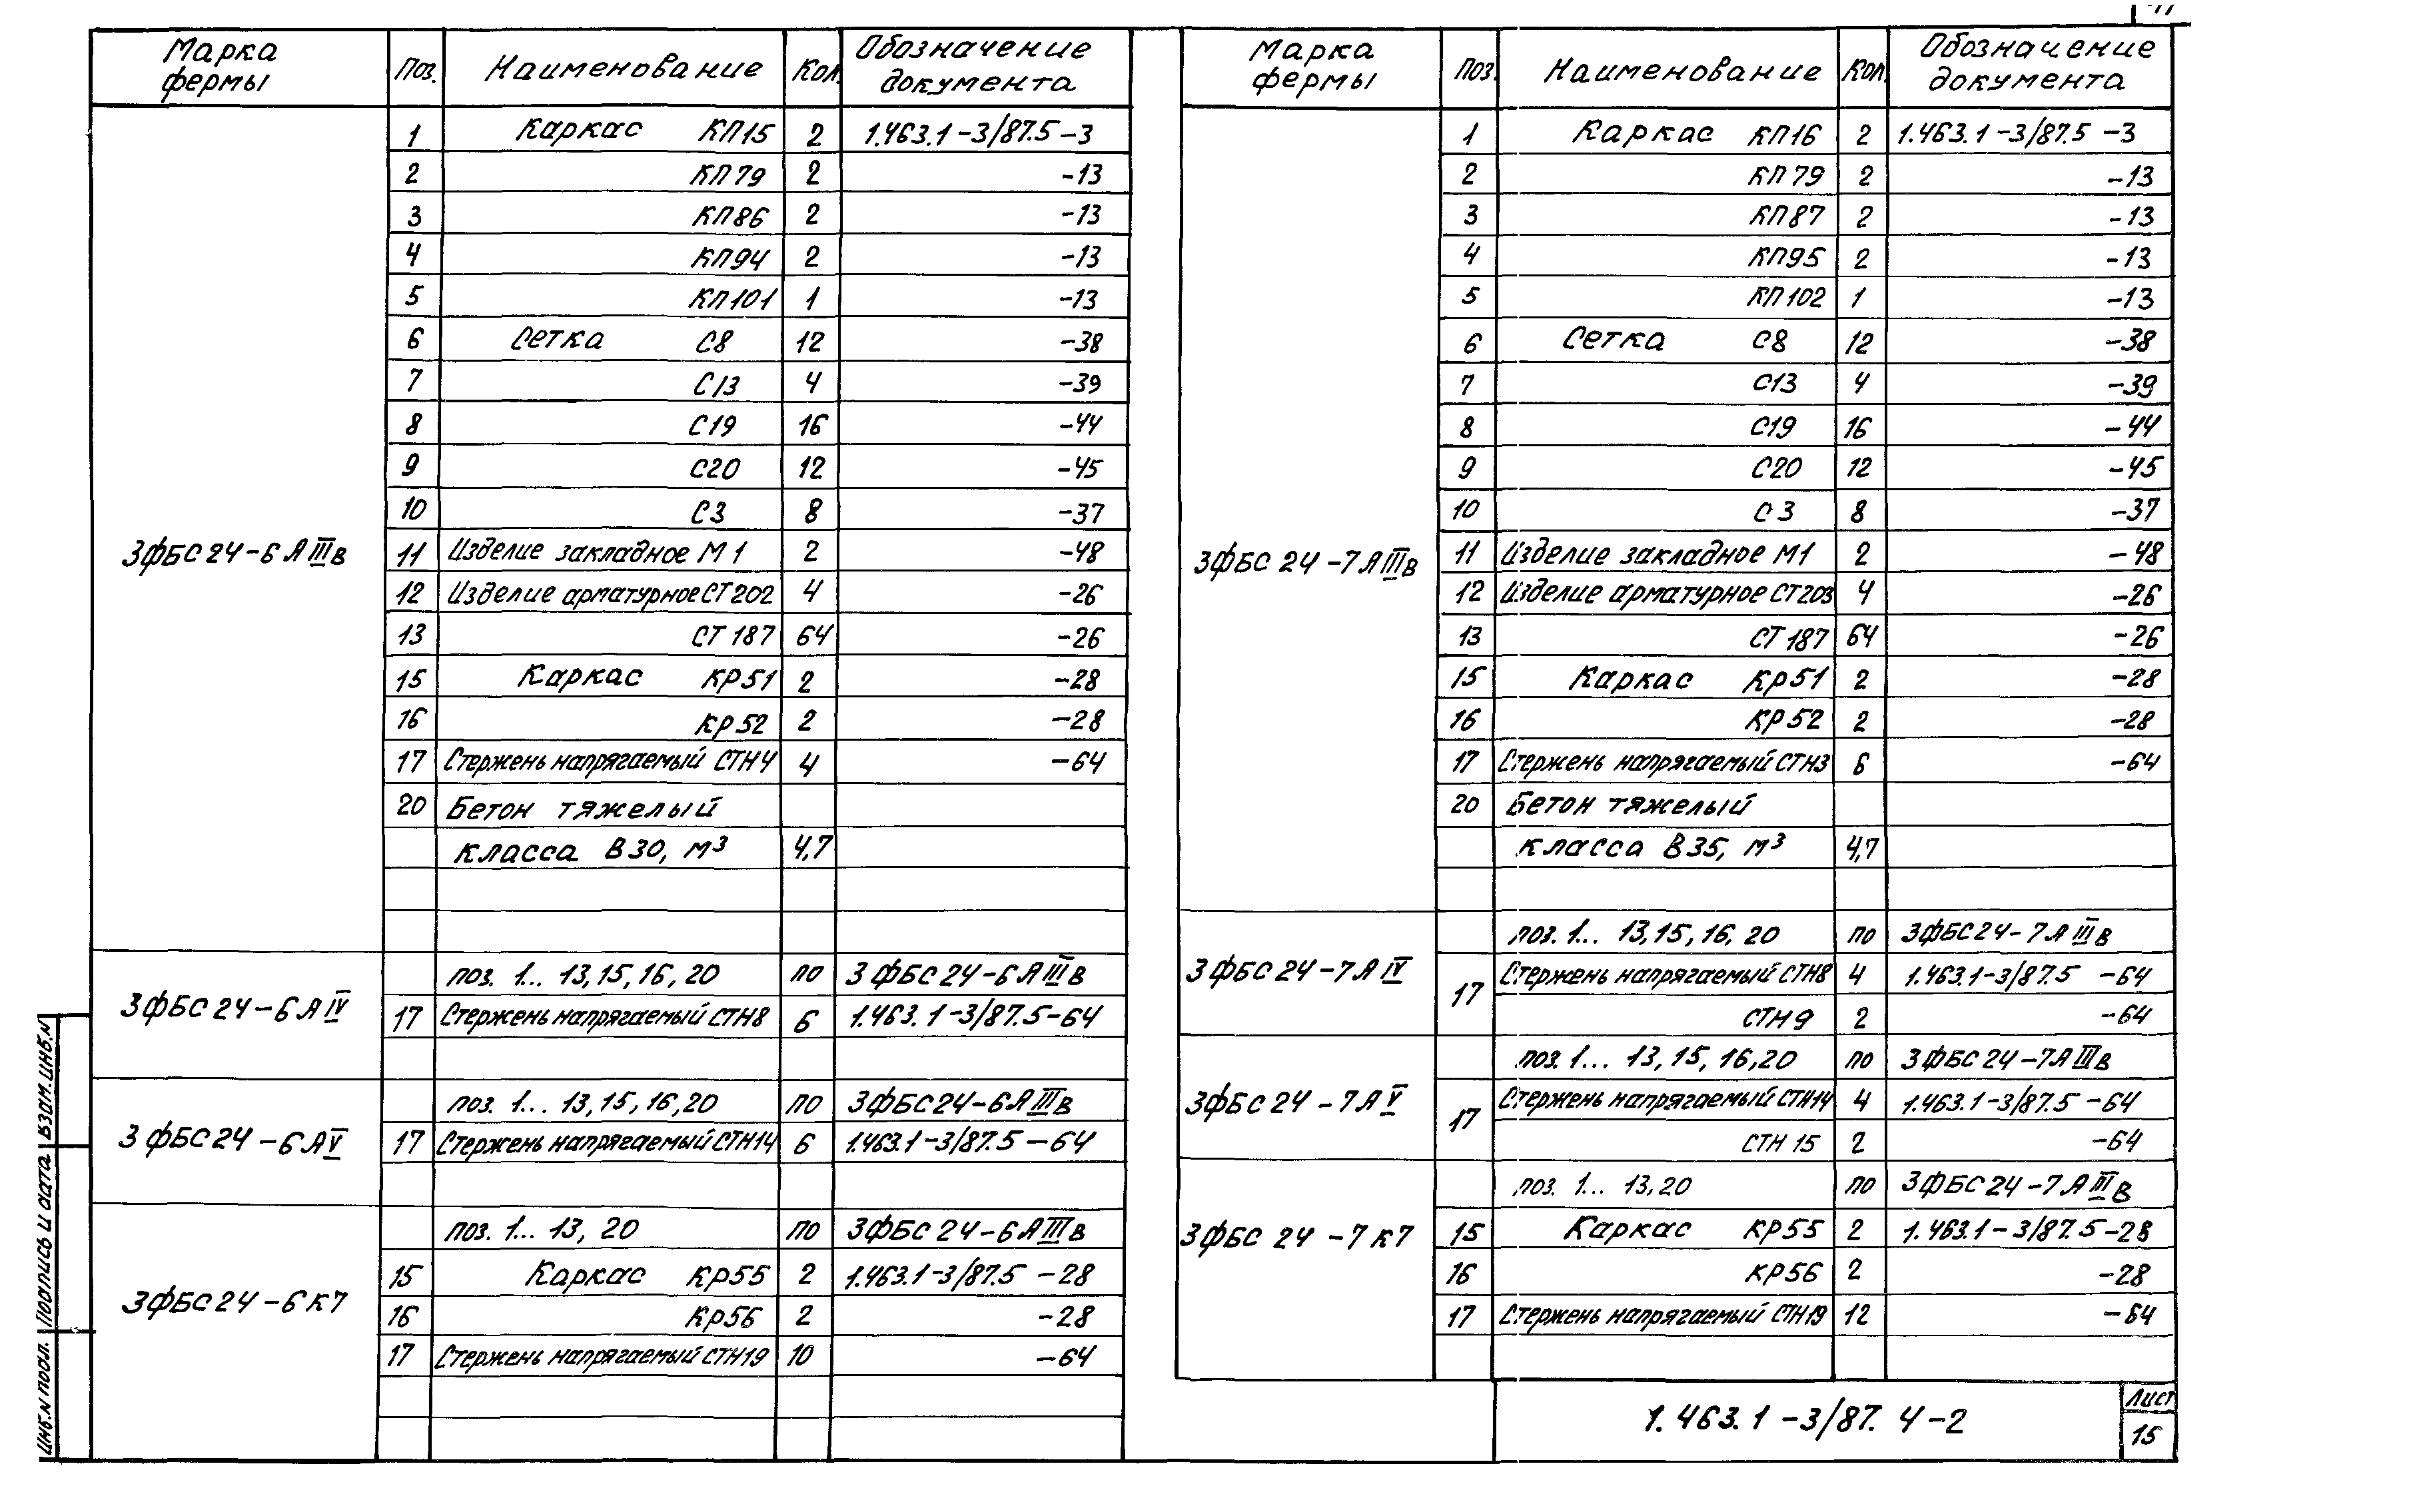 Марка фермы Поз. Наименование Кол. Обозначение документа
1 Каркас КП15 2 1.463.1-3/87.5-3
2 КП79 2 -13
3 КП86 2 -13
4 КП94 2 -13
5 КП101 1 -13
6 Сетка С8 12 -38
7 С13 4 -39
8 С19 16 -44
9 С20 12 -45
10 С3 8 -37
3ФБС24-6АIIIв 11 Изделие закладное М1 2 -48
12 Изделие арматурное СТ202 4 -26
13 СТ187 64 -26
15 Каркас КР51 2 -28
16 КР52 2 -28
17 Стержень напрягаемый СТН4 4 -64
20 Бетон тяжелый
класса В30, м³ 4,7
поз. 1... 13,15,16,20 по 3ФБС24-6АIIIв
3ФБС24-6АIV 17 Стержень напрягаемый СТН8 6 1.463.1-3/87.5-64
поз. 1... 13,15,16,20 по 3ФБС24-6АIIIв
3ФБС24-6АV 17 Стержень напрягаемый СТН14 6 1.463.1-3/87.5-64
поз. 1... 13, 20 по 3ФБС24-6АIIIв
15 Каркас КР55 2 1.463.1-3/87.5-28
3ФБС24-6К7 16 КР56 2 -28
17 Стержень напрягаемый СТН19 10 -64
Марка фермы Поз. Наименование Кол. Обозначение документа
1 Каркас КП16 2 1.463.1-3/87.5-3
2 КП79 2 -13
3 КП87 2 -13
4 КП95 2 -13
5 КП102 1 -13
6 Сетка С8 12 -38
7 С13 4 -39
8 С19 16 -44
9 С20 12 -45
10 С3 8 -37
3ФБС24-7АIIIв 11 Изделие закладное М1 2 -48
12 Изделие арматурное СТ203 4 -26
13 СТ187 64 -26
15 Каркас КР51 2 -28
16 КР52 2 -28
17 Стержень напрягаемый СТН3 6 -64
20 Бетон тяжелый
класса В35, м³ 4,7
поз. 1... 13,15,16,20 по 3ФБС24-7АIIIв
3ФБС24-7АIV 17 Стержень напрягаемый СТН8 4 1.463.1-3/87.5-64
СТН9 2 -64
поз. 1... 13,15,16,20 по 3ФБС24-7АIIIв
3ФБС24-7АV 17 Стержень напрягаемый СТН14 4 1.463.1-3/87.5-64
СТН15 2 -64
поз. 1... 13,20 по 3ФБС24-7АIIIв
3ФБС24-7К7 15 Каркас КР55 2 1.463.1-3/87.5-28
16 КР56 2 -28
17 Стержень напрягаемый СТН19 12 -64
1.463.1-3/87.4-2
Лист
15
Инв.N подл. Подпись и дата Взам.инв.N